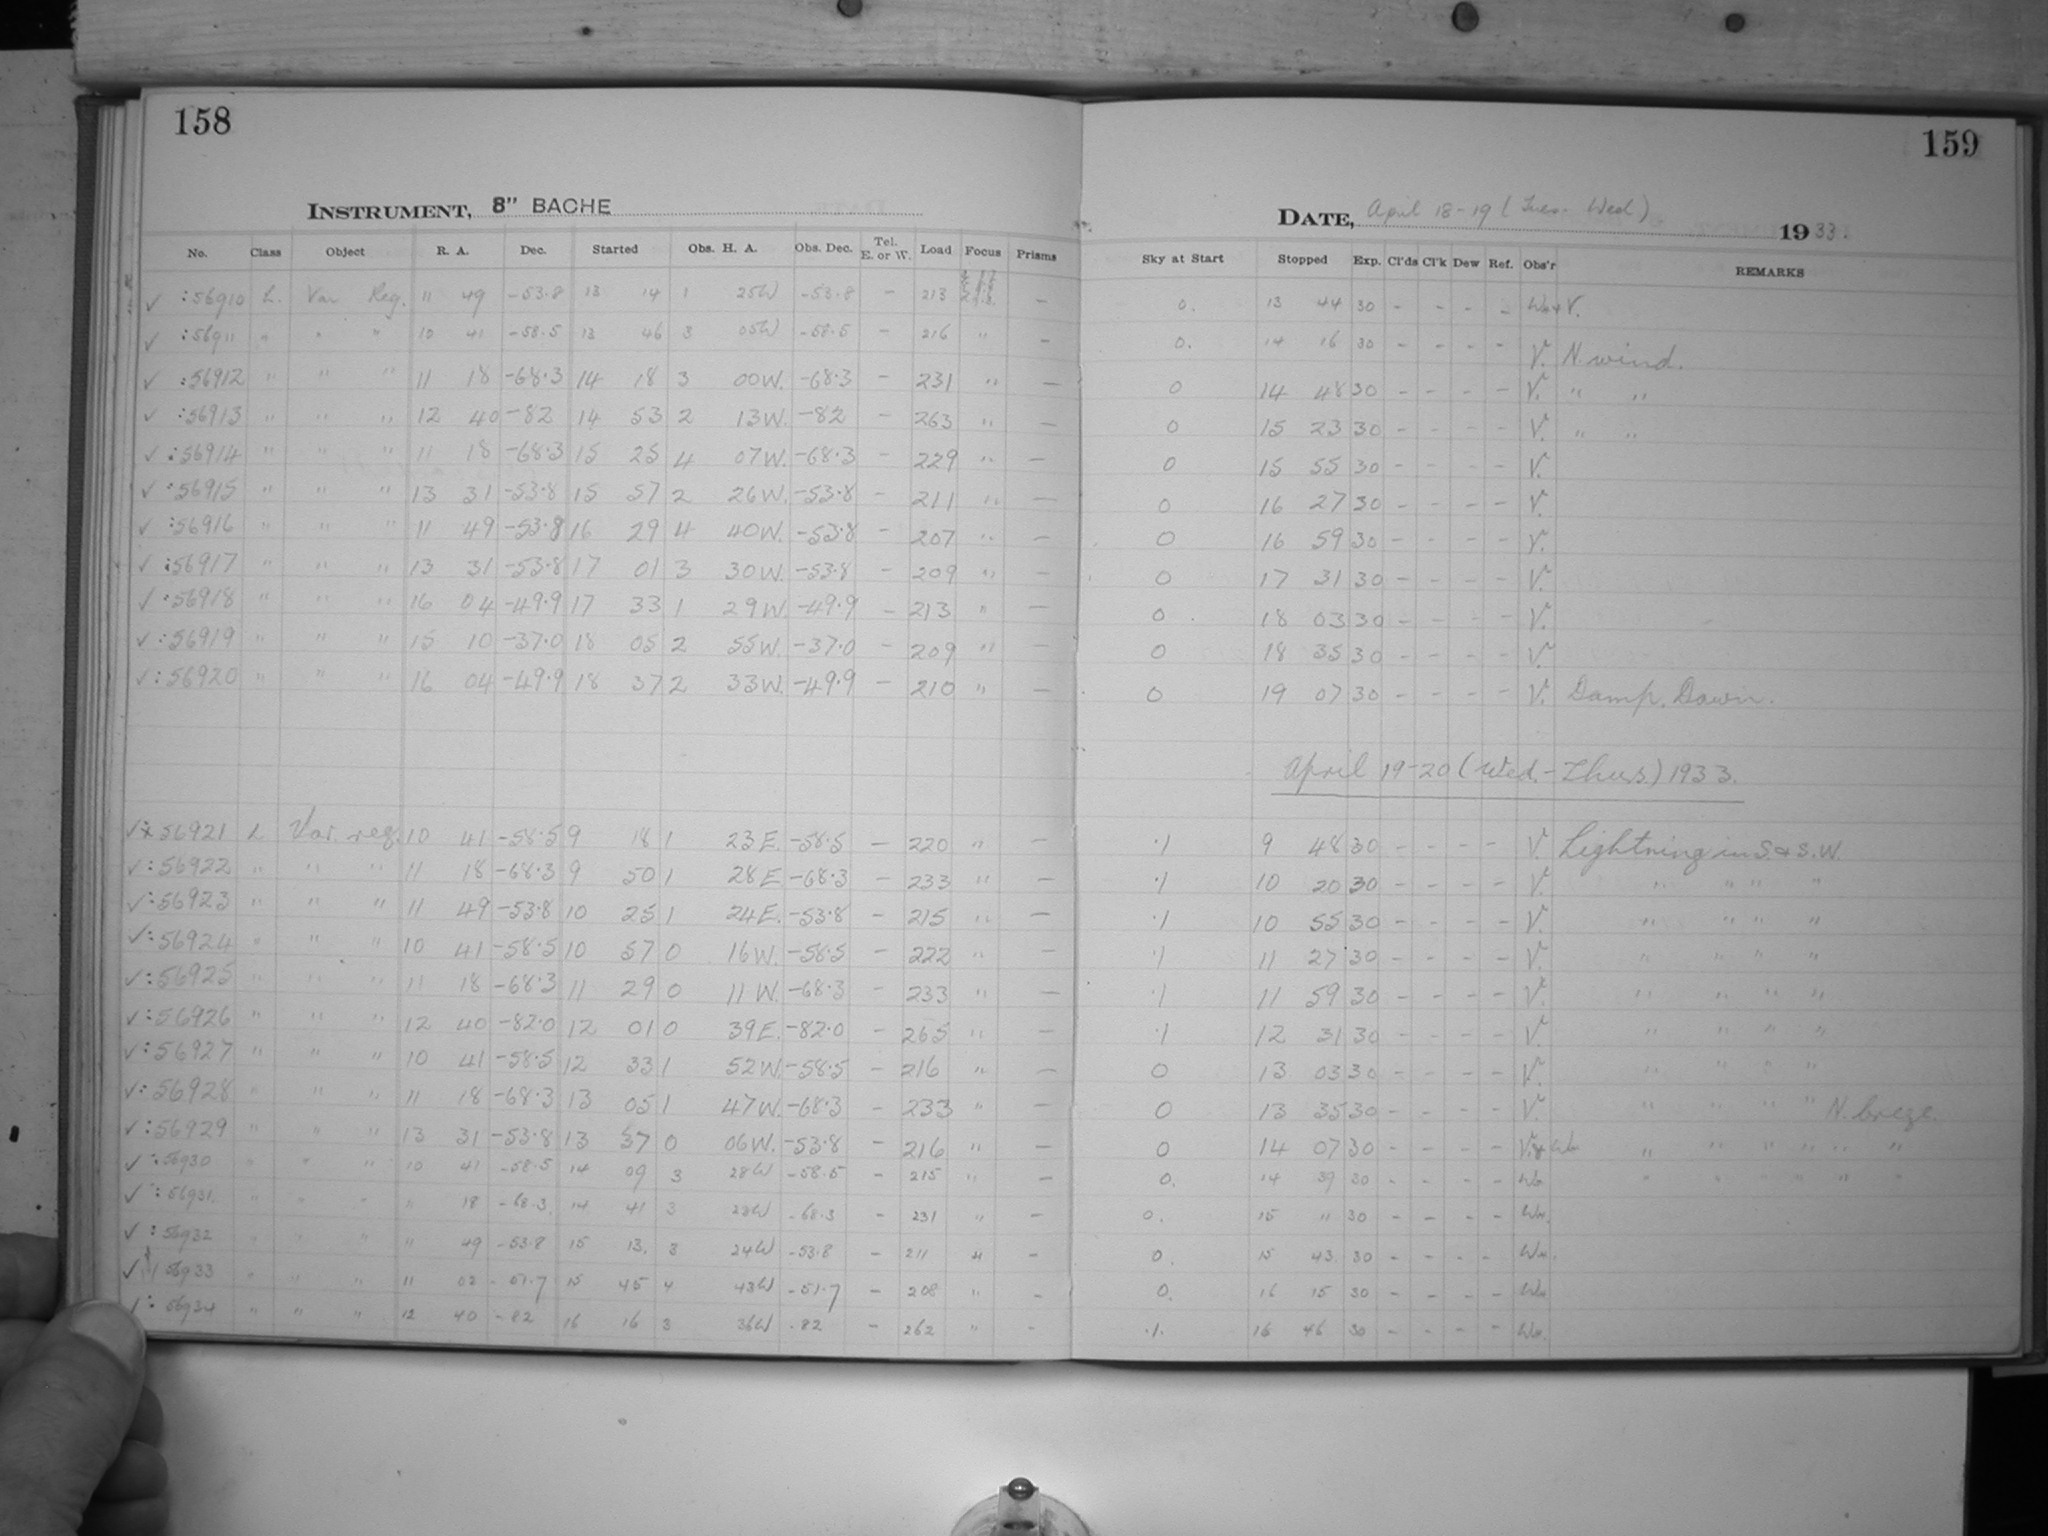 158
INSTRUMENT, 8" BACHE
No. Class Object R. A. Dec. Started Obs. H. A. Obs. Dec. Tel. E. or W. Load Focus Prisms
✓ :56910 L. Var Reg. 11 49 -53.8 13 14 1 25W -53.8 - 213 -
✓ :56911 " " " 10 41 -58.5 13 46 3 05W -58.5 - 216 " -
✓ :56912 " " " 11 18 -68.3 14 18 3 00W. -68.3 - 231 " -
✓ :56913 " " " 12 40 -82 14 53 2 13W. -82 - 263 " -
✓ :56914 " " " 11 18 -68.3 15 25 4 07W. -68.3 - 229 " -
✓ :56915 " " " 13 31 -53.8 15 57 2 26W. -53.8 - 211 " -
✓ :56916 " " " 11 49 -53.8 16 29 4 40W. -53.8 - 207 " -
✓ :56917 " " " 13 31 -53.8 17 01 3 30W. -53.8 - 209 " -
✓ :56918 " " " 16 04 -49.9 17 33 1 29W. -49.9 - 213 " -
✓ :56919 " " " 15 10 -37.0 18 05 2 55W. -37.0 - 209 " -
✓ :56920 " " " 16 04 -49.9 18 37 2 33W. -49.9 - 210 " -
✓ 56921 L Var. reg. 10 41 -58.5 9 18 1 23E. -58.5 - 220 " -
✓ :56922 " " " 11 18 -68.3 9 50 1 28E -68.3 - 233 " -
✓ :56923 " " " 11 49 -53.8 10 25 1 24E. -53.8 - 215 " -
✓ :56924 " " " 10 41 -58.5 10 57 0 16W. -58.5 - 222 " -
✓ :56925 " " " 11 18 -68.3 11 29 0 11W. -68.3 - 233 " -
✓ :56926 " " " 12 40 -82.0 12 01 0 39E. -82.0 - 265 " -
✓ :56927 " " " 10 41 -58.5 12 33 1 52W. -58.5 - 216 " -
✓ :56928 " " " 11 18 -68.3 13 05 1 47W. -68.3 - 233 " -
✓ :56929 " " " 13 31 -53.8 13 37 0 06W. -53.8 - 216 " -
✓ :56930 " " " 10 41 -58.5 14 09 3 28W -58.5 - 215 " -
✓ :56931. " " " " 18 -68.3. 14 41 3 23W -68.3 - 231 " -
✓ :56932 " " " " 49 -53.8 15 13. 3 24W -53.8 - 211 " -
✓ 56933 " " " 11 02 15 45 4 43W -51.7 - 208 " -
✓ : 56934 " " " 12 40 -82 16 16 3 36W -82 - 262 " -
159
DATE, April 18-19 (Tues. Wed) 1933.
Sky at Start Stopped Exp. Cl'ds Cl'k Dew Ref. Obs'r REMARKS
0. 13 44 30 - - - - V.
0. 14 16 30 - - - - V. N. wind.
0 14 48 30 - - - - V. " "
0 15 23 30 - - - - V. " "
0 15 55 30 - - - - V.
0 16 27 30 - - - - V.
0 16 59 30 - - - - V.
0 17 31 30 - - - - V.
0 18 03 30 - - - - V.
0 18 35 30 - - - - V.
0 19 07 30 - - - - V. Damp. Dawn.
April 19-20 (Wed.-Thurs.) 1933.
.1 9 48 30 - - - - V. Lightning in S. & S.W.
.1 10 20 30 - - - - V. " " " "
.1 10 55 30 - - - - V. " " " "
.1 11 27 30 - - - - V. " " " "
.1 11 59 30 - - - - V. " " " "
.1 12 31 30 - - - - V. " " " "
0 13 03 30 - - - - V. " " " "
0 13 35 30 - - - - V. " " " " N. breeze.
0 14 07 30 - - - - V. & " " " " " "
0. 14 39 30 - - - - " " " " " "
0. 15 11 30 - - - -
0. 15 43 30 - - - -
0. 16 15 30 - - - -
.1. 16 46 30 - - - -